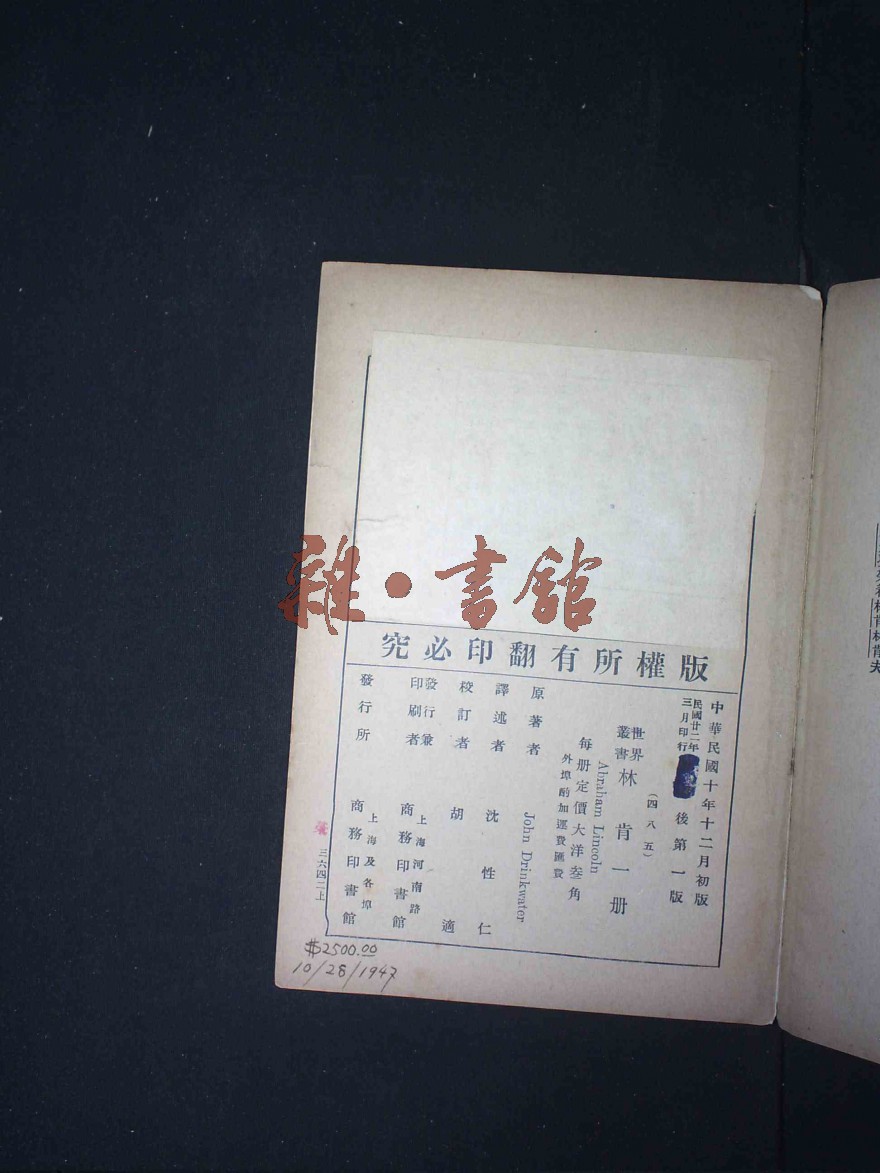 雜·書館
版權所有翻印必究
中華民國十年十二月初版
民國廿二年
三月印行
後第一版
(四八五)
世界
叢書
林肯一册
Abraham Lincoln
每册定價大洋叁角
外埠酌加運費匯費
原著者 John Drinkwater
譯述者 沈性仁
校訂者 胡適
發行兼
印刷者
上海河南路
商務印書館
發行所
上海及各埠
商務印書館
三六四二上
$2500.00
10/28/1947